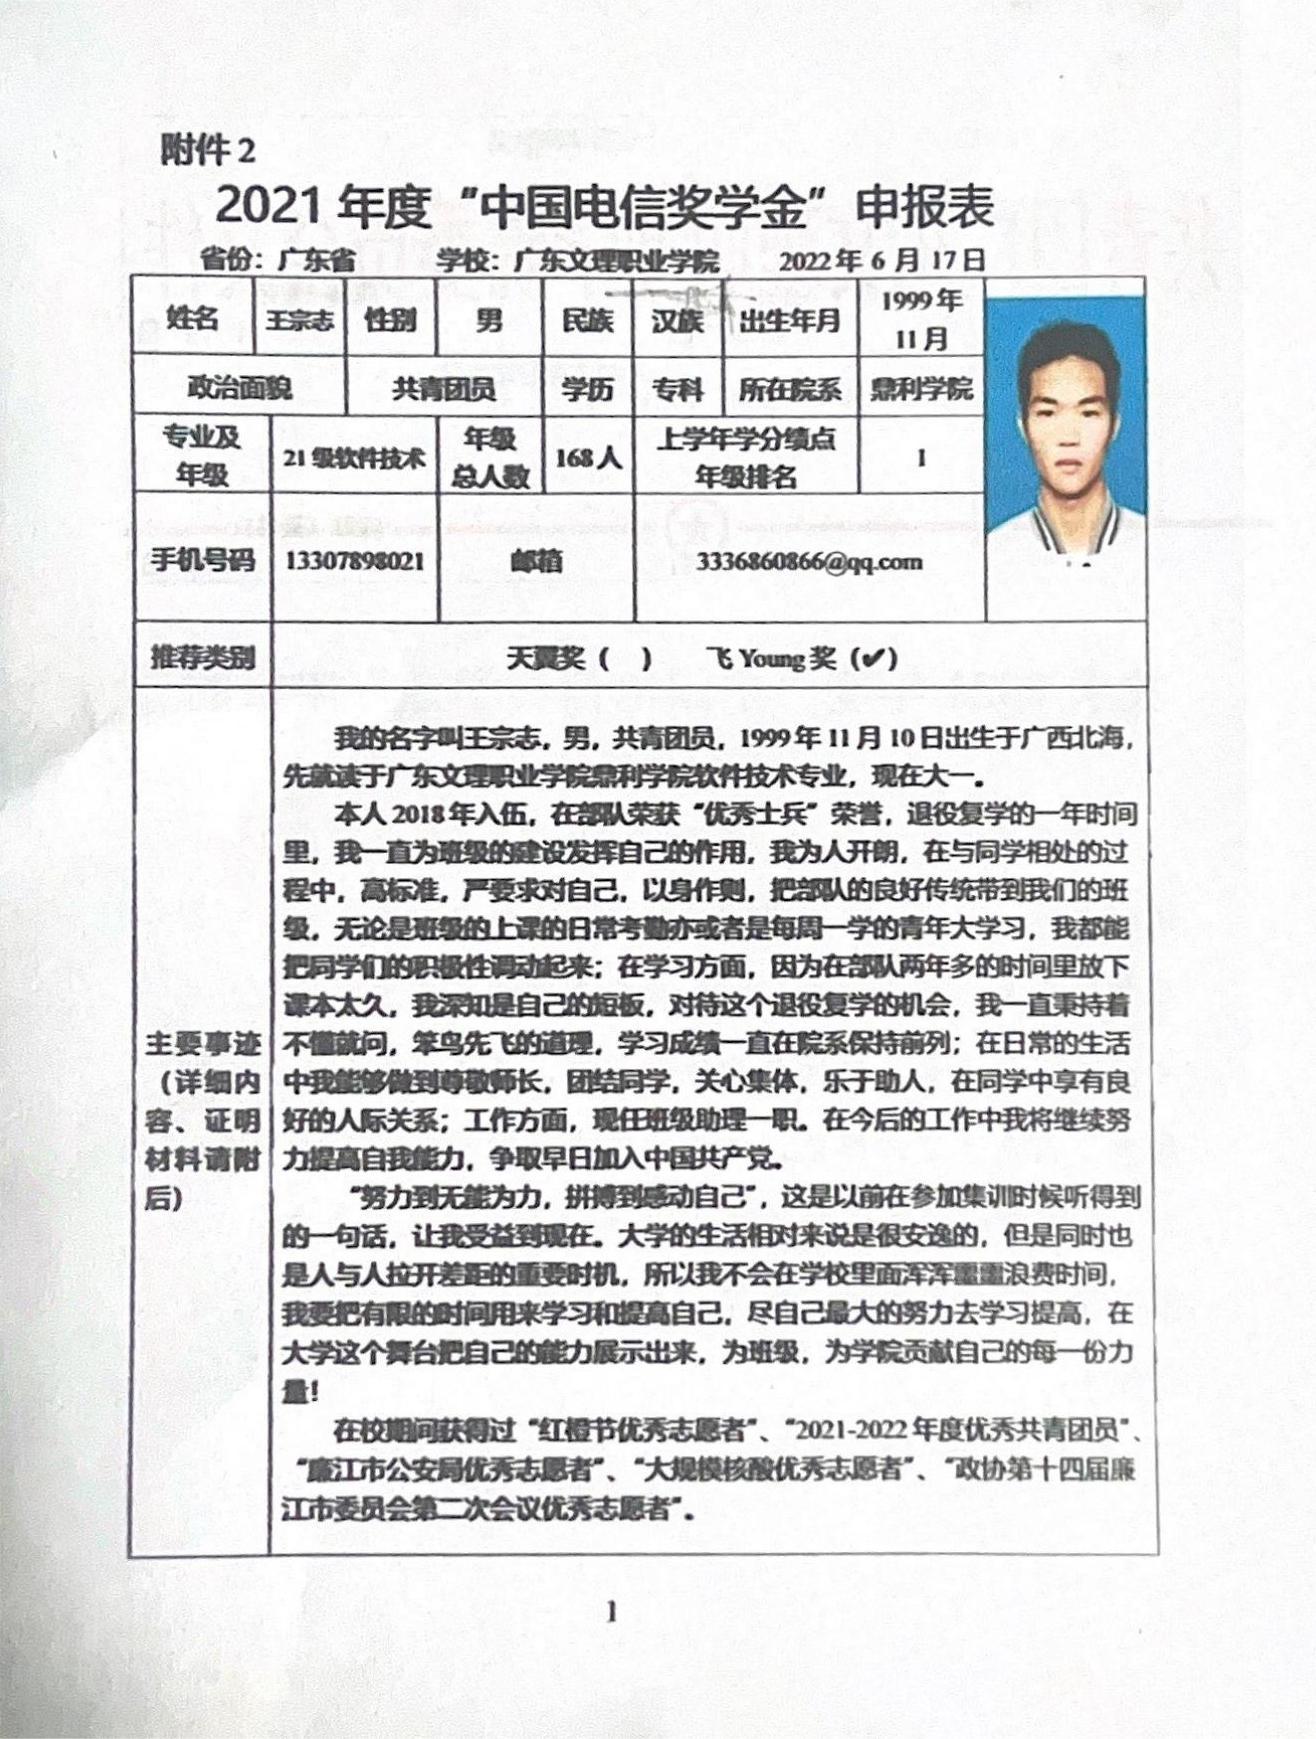 附件2
2021年度“中国电信奖学金”申报表
省份：广东省 学校：广东文理职业学院 2022年6月17日
姓名 王宗志 性别 男 民族 汉族 出生年月 1999年11月
政治面貌 共青团员 学历 专科 所在院系 鼎利学院
专业及年级 21级软件技术 年级总人数 168人 上学年学分绩点年级排名 1
手机号码 13307898021 邮箱 3336860866@qq.com
推荐类别 天翼奖（ ） 飞Young奖（✔）
主要事迹（详细内容、证明材料请附后）
我的名字叫王宗志，男，共青团员，1999年11月10日出生于广西北海，
先就读于广东文理职业学院鼎利学院软件技术专业，现在大一。
本人2018年入伍，在部队荣获“优秀士兵”荣誉，退役复学的一年时间
里，我一直为班级的建设发挥自己的作用，我为人开朗，在与同学相处的过
程中，高标准，严要求对自己，以身作则，把部队的良好传统带到我们的班
级，无论是班级的上课的日常考勤亦或者是每周一学的青年大学习，我都能
把同学们的积极性调动起来；在学习方面，因为在部队两年多的时间里放下
课本太久，我深知是自己的短板，对待这个退役复学的机会，我一直秉持着
不懂就问，笨鸟先飞的道理，学习成绩一直在院系保持前列；在日常的生活
中我能够做到尊敬师长，团结同学，关心集体，乐于助人，在同学中享有良
好的人际关系；工作方面，现任班级助理一职。在今后的工作中我将继续努
力提高自我能力，争取早日加入中国共产党。
“努力到无能为力，拼搏到感动自己”，这是以前在参加集训时候听得到
的一句话，让我受益到现在。大学的生活相对来说是很安逸的，但是同时也
是人与人拉开差距的重要时机，所以我不会在学校里面浑浑噩噩浪费时间，
我要把有限的时间用来学习和提高自己，尽自己最大的努力去学习提高，在
大学这个舞台把自己的能力展示出来，为班级，为学院贡献自己的每一份力
量！
在校期间获得过“红橙节优秀志愿者”、“2021-2022年度优秀共青团员”、
“廉江市公安局优秀志愿者”、“大规模核酸优秀志愿者”、“政协第十四届廉
江市委员会第二次会议优秀志愿者”。
1